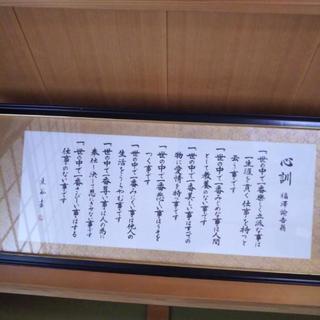 心訓
福澤諭吉翁
一、世の中で一番楽しく立派な事は
一生涯を貫く仕事を持つと
云う事です
一、世の中で一番みじめな事は人間
として教養のない事です
一、世の中で一番美しい事はすべての
物に愛情を持つ事です
一、世の中で一番悲しい事はうそを
つく事です
一、世の中で一番みにくい事は他人の
生活をうらやむ事です
一、世の中で一番尊い事は人の為に
奉仕し決して恩にきせない事です
一、世の中で一番さびしい事はする
仕事のない事です